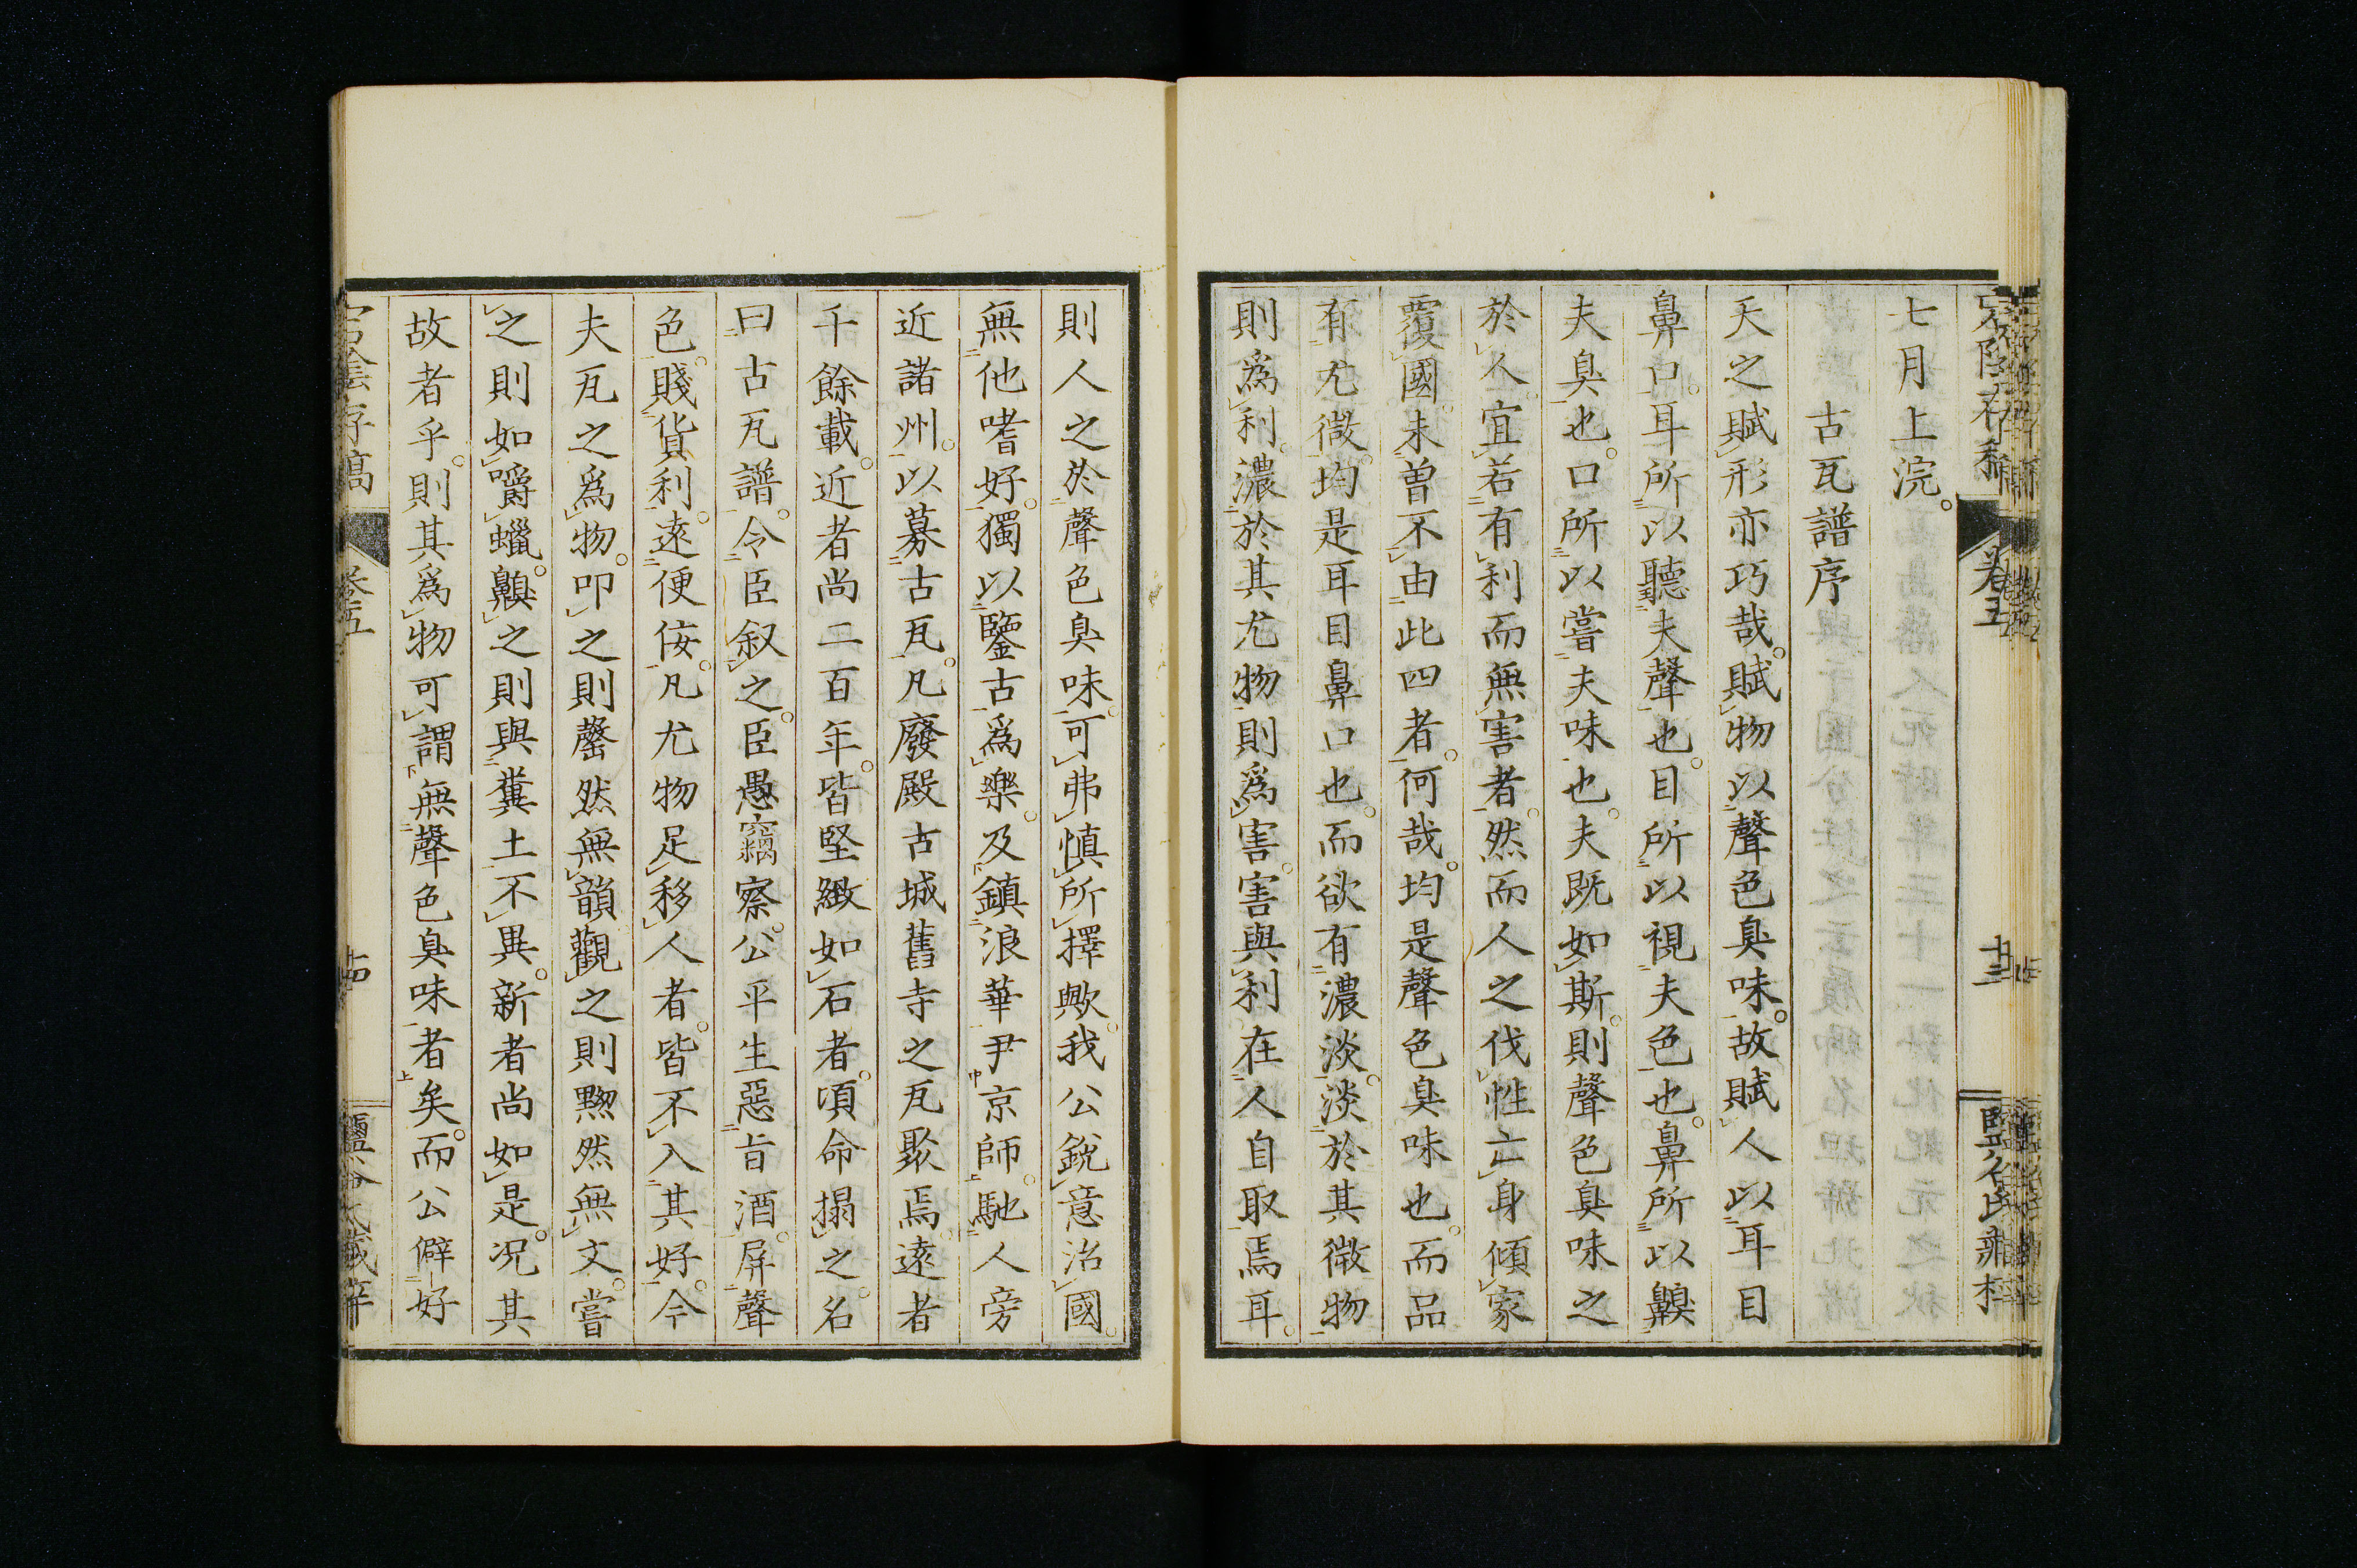 七月上浣。
古瓦譜序
天之賦形亦巧哉。賦物以聲色臭味。故賦人以耳目
鼻口。耳所以聽夫聲也。目所以視夫色也。鼻所以齅
夫臭也。口所以嘗夫味也。夫既如斯。則聲色臭味之
於人宜若有利而無害者。然而人之伐性亡身傾家
覆國。未曾不由此四者。何哉。均是聲色臭味也。而品
有尤微。均是耳目鼻口也。而欲有濃淡。淡於其微物
則爲利。濃於其尤物則爲害。害與利在人自取焉耳。
卷五
十三
則人之於聲色臭味。可弗慎所擇歟。我公銳意治國。
無他嗜好。獨以鑒古爲樂。及鎮浪華尹京師。馳人旁
近諸州。以募古瓦。凡廢殿古城舊寺之瓦聚焉。遠者
千餘載。近者尚二百年。皆堅緻如石者。頃命搨之。名
曰古瓦譜。令臣叙之。臣愚竊察。公平生惡旨酒。屏聲
色。賤貨利。遠便佞。凡尤物足移人者。皆不入其好。今
夫瓦之爲物。叩之則罄然無韻。觀之則黦然無文。嘗
之則如嚼蠟。齅之則與糞土不異。新者尚如是。況其
故者乎。則其爲物可謂無聲色臭味者矣。而公僻好
卷五
十四